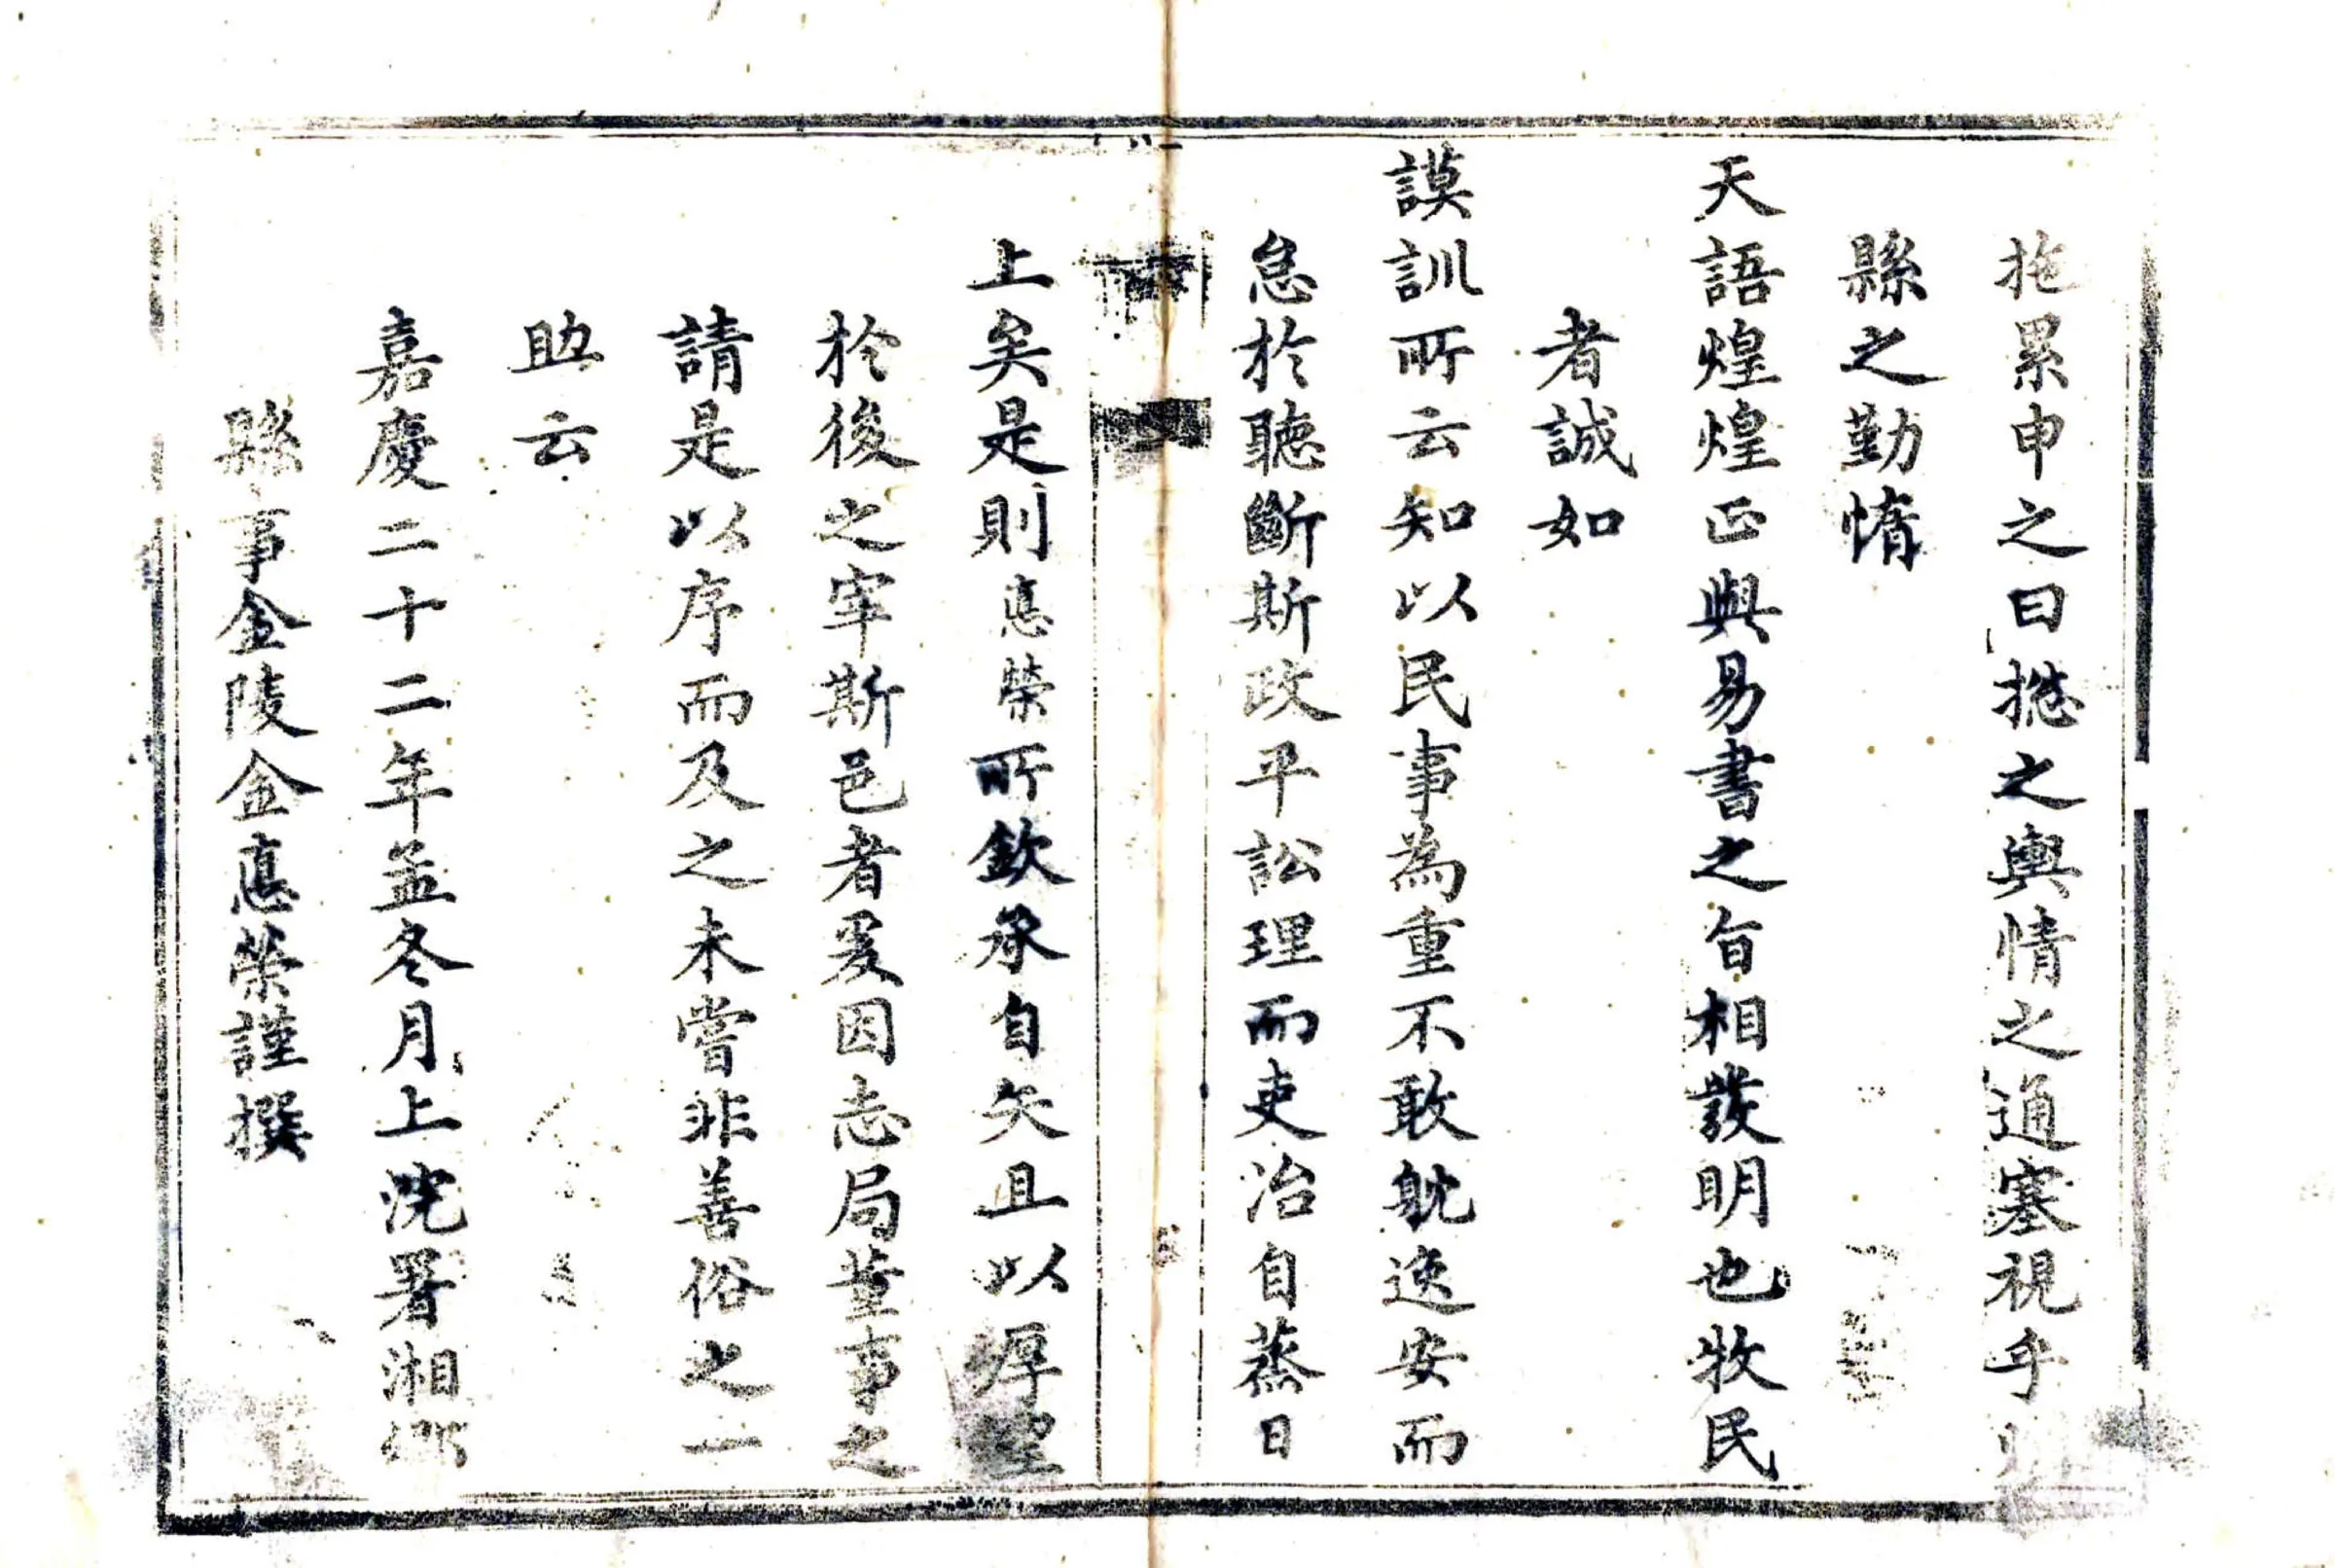 拖累申之曰摠之輿情之通塞視乎
縣之勤惰
天語煌煌正與易書之旨相發明也牧民
者誠如
謨訓所云知以民事為重不敢躭逸安而
怠於聽斷斯政平訟理而吏治自蒸日
上矣是則應榮所欽承自矢且以厚望
於後之宰斯邑者爰因志局董事之
請是以序而及之未嘗非善俗之一
助云
嘉慶二十二年孟冬月上浣署湘鄉
縣事金陵金應榮謹撰